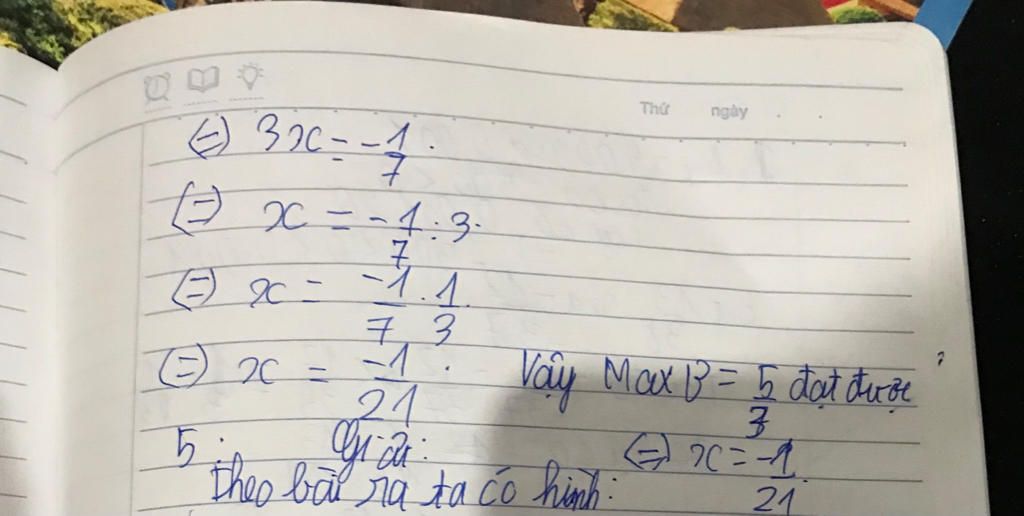 Thứ ngày
(=) 3x = -1/7.
(=) x = -1/7 : 3.
(=) x = -1/7 . 1/3.
(=) x = -1/21. Vậy Max B = 5/3 đạt được
(=) x = -1/21.
5. Giải:
Theo bài ra ta có hình: